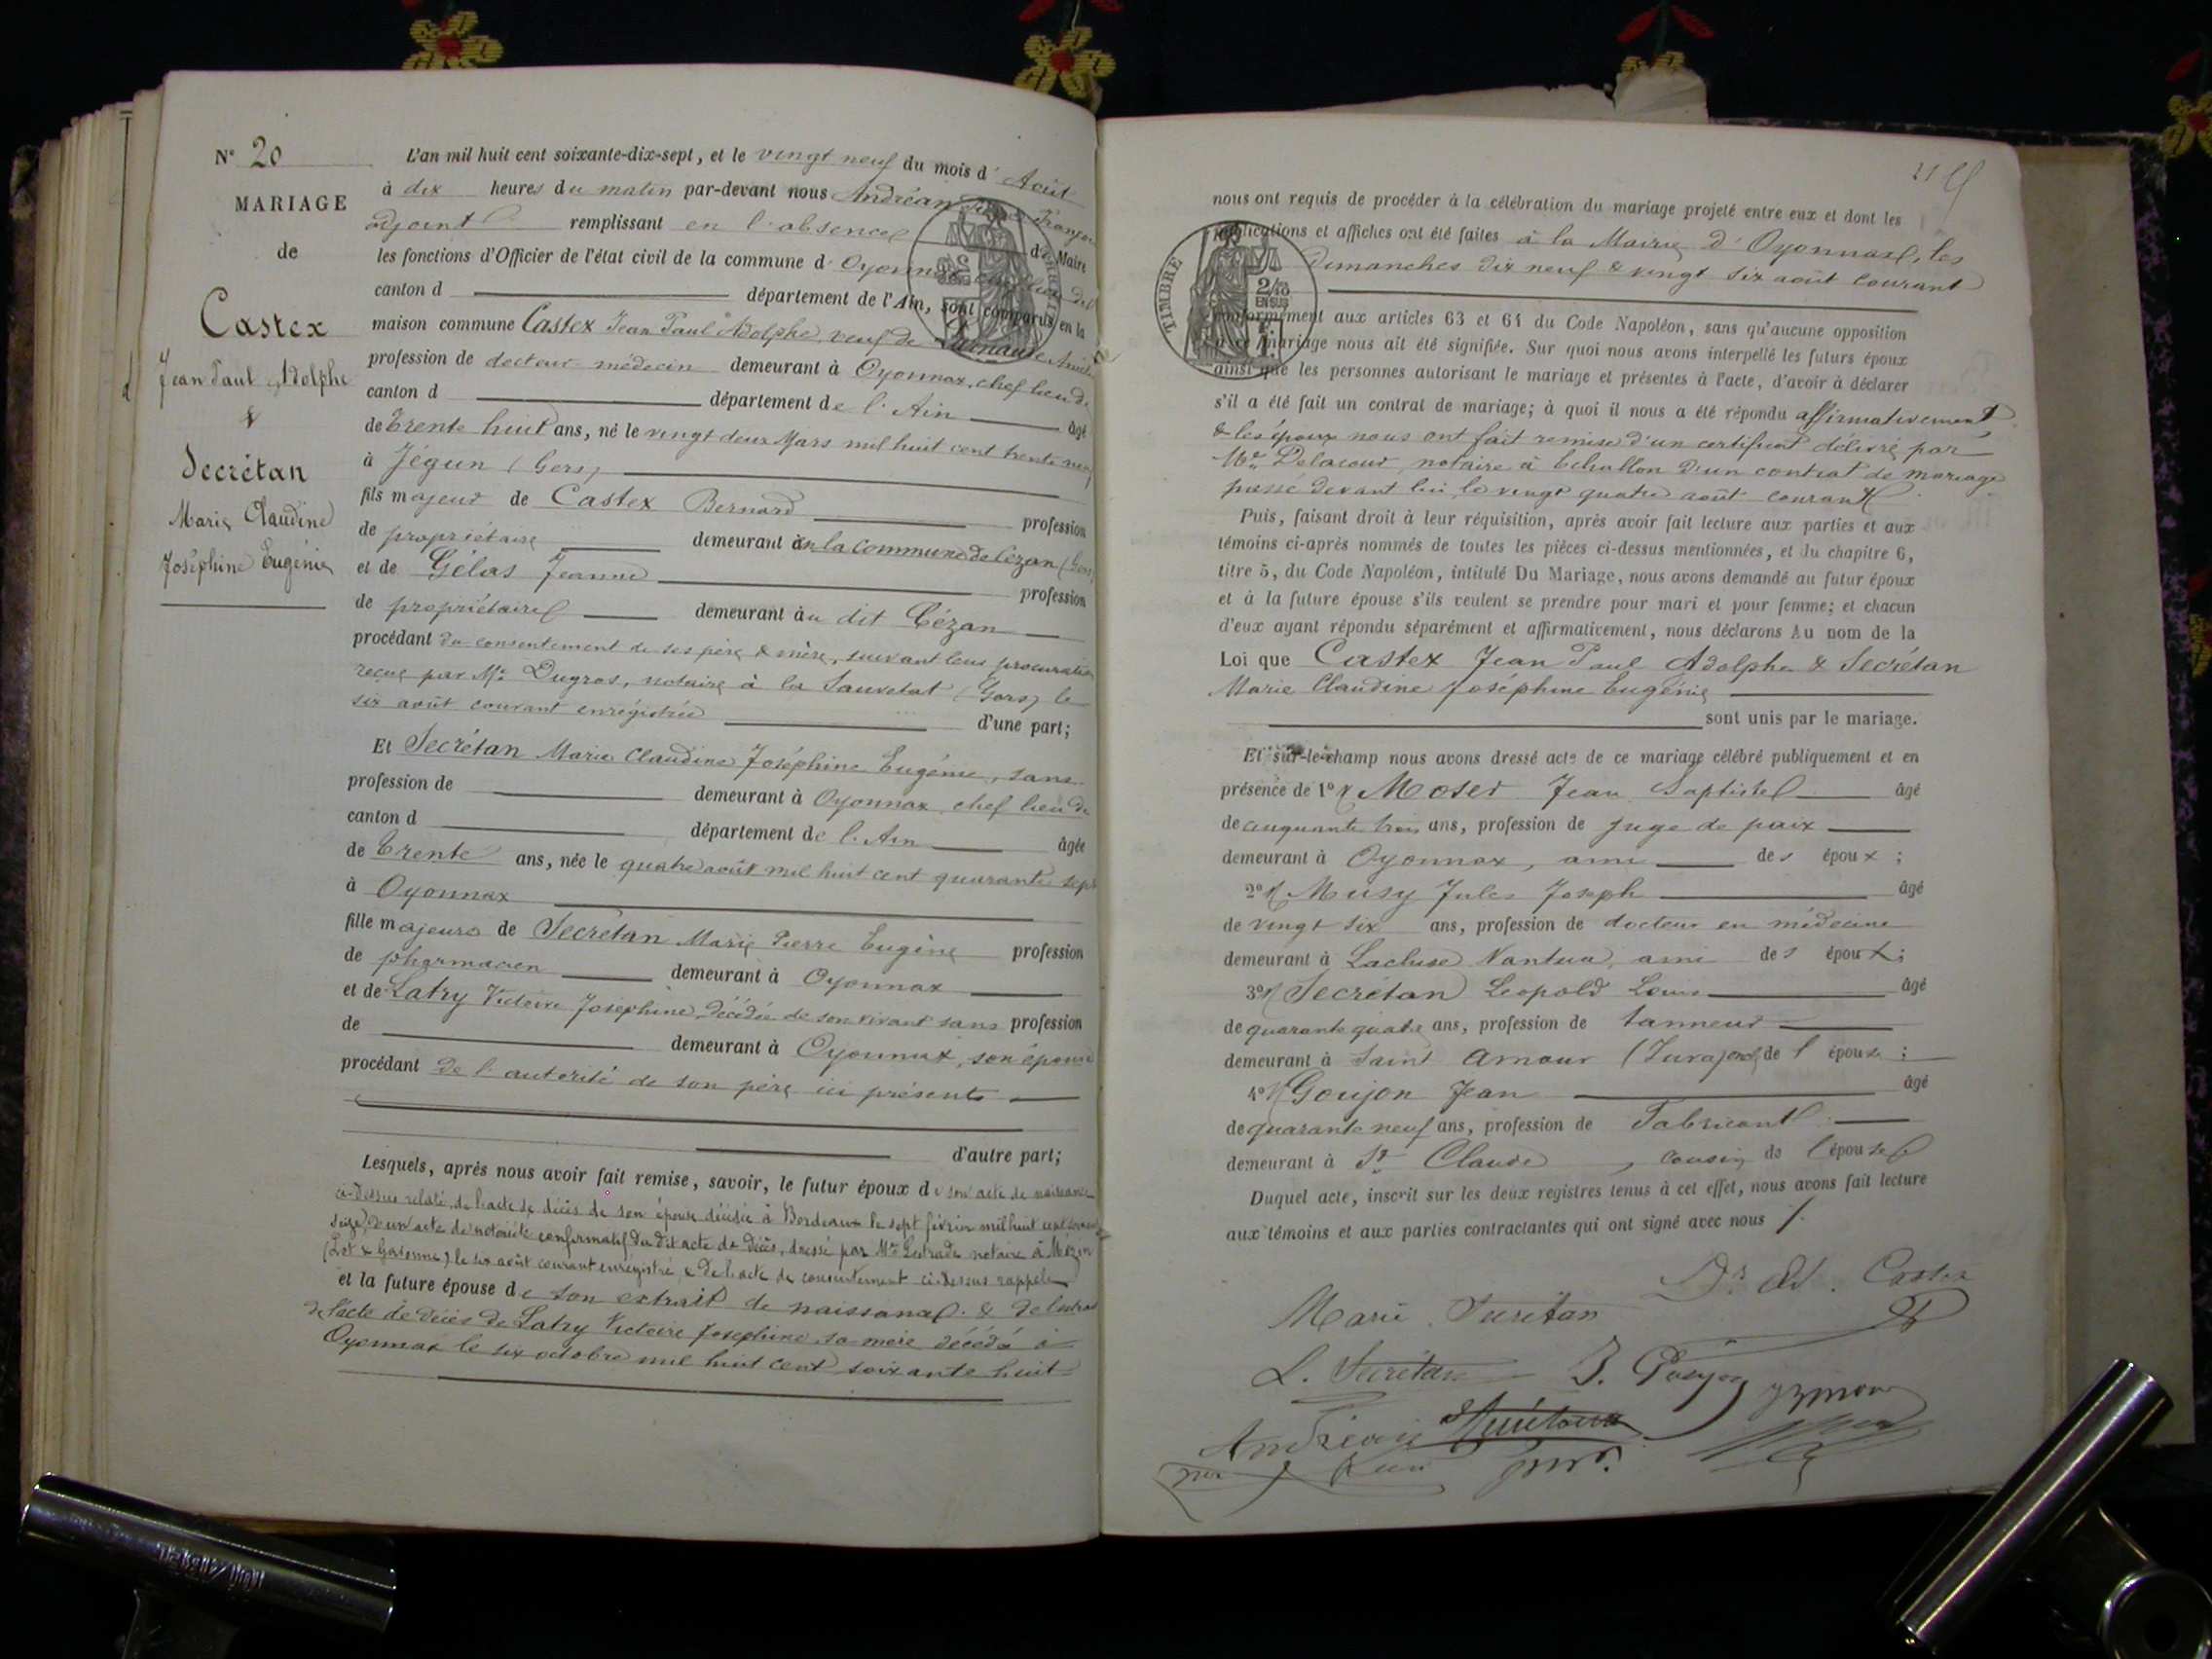 N° 20
MARIAGE
de
Castex
Jean Paul Adolphe
&
Secrétan
Marie Claudine
Joséphine Eugénie
L'an mil huit cent soixante-dix-sept, et le vingt neuf du mois d'Août
à dix heures du matin par-devant nous Andréan François
adjoint remplissant en l'absence de Maire
les fonctions d'Officier de l'état civil de la commune d'Oyonnax chef lieu de
canton d département de l'Ain, sont comparus en la
maison commune Castex Jean Paul Adolphe, veuf de
profession de docteur médecin demeurant à Oyonnax, chef lieu de
canton d département de l'Ain âgé
de trente huit ans, né le vingt deux Mars mil huit cent trente neuf
à Jégun (Gers)
fils majeur de Castex Bernard profession
de propriétaire demeurant dans la commune de Cézan (Gers)
et de Gélas Jeanne profession
de propriétaire demeurant au dit Cézan
procédant du consentement de ses père & mère, suivant leur procuration
reçue par Me Dugros, notaire à la Sauvetat (Gers) le
six août courant enregistrée d'une part;
Et Secrétan Marie Claudine Joséphine Eugénie, sans
profession de demeurant à Oyonnax chef lieu de
canton d département de l'Ain âgée
de trente ans, née le quatre août mil huit cent quarante sept
à Oyonnax
fille majeure de Secrétan Marie Pierre Eugène profession
de pharmacien demeurant à Oyonnax
et de Latry Victoire Joséphine, décédée de son vivant sans profession
de demeurant à Oyonnax, son épouse
procédant de l'autorité de son père ici présent
d'autre part;
Lesquels, après nous avoir fait remise, savoir, le futur époux de son acte de naissance
ci-dessus relaté, de l'acte de décès de son épouse décédée à Bordeaux le sept février mil huit cent soixante
seize, d'un acte de notoriété confirmatif du dit acte de décès, dressé par Me Lestrade notaire à Mézin
(Lot & Garonne) le six août courant enregistré, & de l'acte de consentement ci-dessus rappelé
et la future épouse de son extrait de naissance & de l'extrait
de l'acte de décès de Latry Victoire Joséphine sa mère décédée à
Oyonnax le six octobre mil huit cent soixante huit
nous ont requis de procéder à la célébration du mariage projeté entre eux et dont les
publications et affiches ont été faites à la Mairie d'Oyonnax, les
Dimanches dix neuf & vingt six août courant
TIMBRE
2/10
EN SUS
conformément aux articles 63 et 64 du Code Napoléon, sans qu'aucune opposition
à ce mariage nous ait été signifiée. Sur quoi nous avons interpellé les futurs époux
ainsi que les personnes autorisant le mariage et présentes à l'acte, d'avoir à déclarer
s'il a été fait un contrat de mariage; à quoi il nous a été répondu affirmativement
& les époux nous ont fait remise d'un certificat délivré par
Me Delacour notaire à Echallon d'un contrat de mariage
passé devant lui le vingt quatre août courant
Puis, faisant droit à leur réquisition, après avoir fait lecture aux parties et aux
témoins ci-après nommés de toutes les pièces ci-dessus mentionnées, et du chapitre 6,
titre 5, du Code Napoléon, intitulé Du Mariage, nous avons demandé au futur époux
et à la future épouse s'ils veulent se prendre pour mari et pour femme; et chacun
d'eux ayant répondu séparément et affirmativement, nous déclarons Au nom de la
Loi que Castex Jean Paul Adolphe & Secrétan
Marie Claudine Joséphine Eugénie
sont unis par le mariage.
Et sur-le-champ nous avons dressé acte de ce mariage célébré publiquement et en
présence de 1° Moser Jean Baptiste âgé
de cinquante trois ans, profession de juge de paix
demeurant à Oyonnax, ami des époux;
2° Musy Jules Joseph âgé
de vingt six ans, profession de docteur en médecine
demeurant à Lacluse Nantua, ami des époux;
3° Secretan Leopold Louis âgé
de quarante quatre ans, profession de tanneur
demeurant à Saint Amour (Jura) de l'épouse;
4° Goujon Jean âgé
de quarante neuf ans, profession de Fabricant
demeurant à St Claude, cousin de l'épouse
Duquel acte, inscrit sur les deux registres tenus à cet effet, nous avons fait lecture
aux témoins et aux parties contractantes qui ont signé avec nous
Dr Ad. Castex
Marie Secrétan
L. Secrétan J. Goujon
Andréan